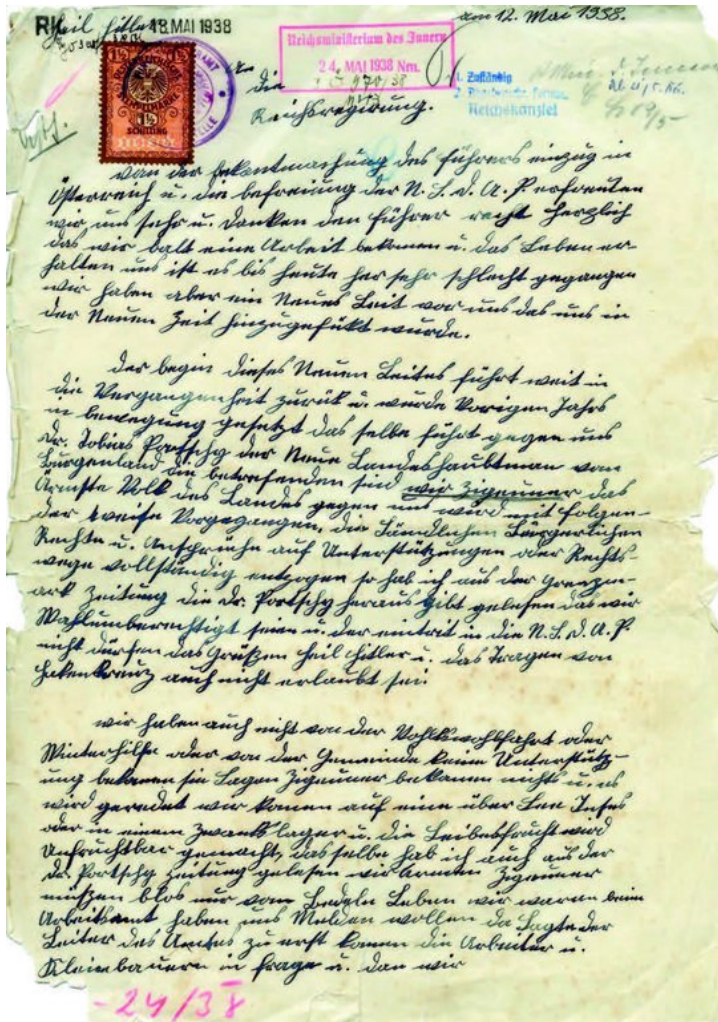 Heil Hitler
RK
18. MAI 1938
am 12. Mai 1938.
Reichsministerium des Innern
24. MAI 1938 Nm.
An
die
Reichsregierung.
1. Zuständig
Reichskanzlei
1½
SCHILLING
von der bekantmachung des führers einzug in
Österreich u. die befreiung der N.S.D.A.P. erfreuten
wir uns sehr u. danken den führer recht herzlich
das wir balt eine Arbeit bekomen u. das Leben er-
halten uns ist es bis heute her sehr schlecht gegangen
wir haben aber ein Neues Leit vor uns das uns in
der Neuen Zeit hinzugefükt wurde.
der begin dieses Neuen Leites führt weit in
die Vergangenheit zurük u. wurde Vorigen Jahrs
in bewegung gesetzt das selbe führt gegen uns
Dr. Tobias Portschy der Neue Landeshaubtman vom
Burgenland die betrefenden sind wir Zigeuner das
Ärmste Volk des Landes gegen uns wird mit folgen-
der weise Vorgegangen, die Sämdlichen Bürgerlichen
Rechte u. Ansprüche auf Unterstützungen oder Rechts-
wege vollständig entzogen so hab ich aus der Grenzm-
ark Zeitung die Dr. Portschy heraus gibt gelesen das wir
Wahlumberechtigt seien u. der eintrit in die N.S.D.A.P.
nicht dürfen das Grüßen heil Hitler u. das Tragen von
Hakenkreuz auch nicht erlaubt sei.
wir haben auch nicht von der Vohlkswohlfahrt oder
Winterhilfe oder von der Gemeinde keine Unterstütz-
ung bekomen sie Sagen Zigeuner bekomen nichts u. es
wird geredet wir komen auf eine über See Insel
oder in einem Zwankslager u. die Leibesfrucht wird
Unfruchtbar gemacht, das selbe hab ich auch aus der
Dr. Portschy Zeitung gelesen wir Armen Zigeuner
müßen blos nur vom bedeln Leben wir waren beim
Arbeitsamt haben uns Melden wollen da Sagte der
Leiter des Amtes zu erst komen die Arbeiter u.
Kleinbauern in frage u. dan wir
-24/38